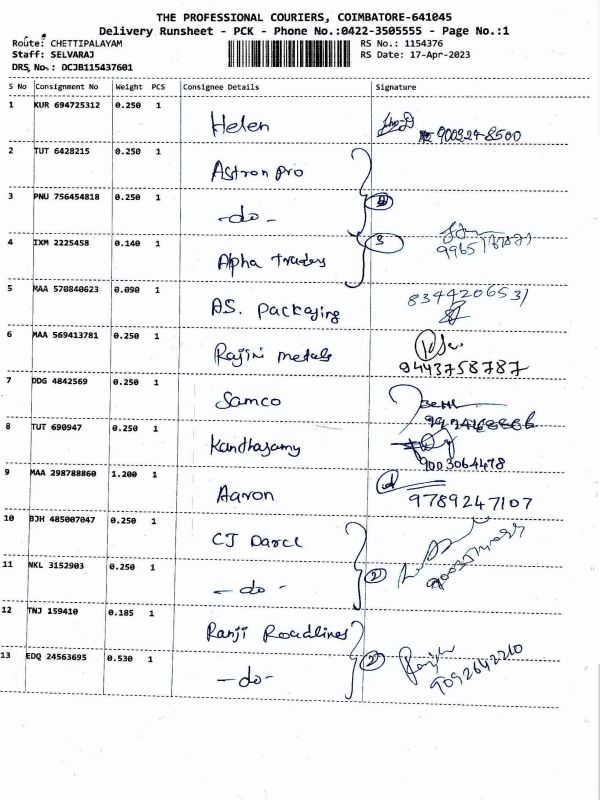 THE PROFESSIONAL COURIERS, COIMBATORE-641045
Delivery Runsheet - PCK - Phone No.:0422-3505555 - Page No.:1
Route: CHETTIPALAYAM RS No.: 1154376
Staff: SELVARAJ RS Date: 17-Apr-2023
DRS No.: DCJB115437601
S No Consignment No Weight PCS Consignee Details Signature
1 KUR 694725312 0.250 1 Helen
2 TUT 6428215 0.250 1 Astron pro
3 PNU 756454818 0.250 1 -do-
4 IXM 2225458 0.140 1 Alpha traders 3
5 MAA 570840623 0.090 1 AS. Packaging 8344206531
6 MAA 569413781 0.250 1 Rajini metals 9443758787
7 DDG 4842569 0.250 1 Samco
8 TUT 690947 0.250 1 Kandhasamy 9003064478
9 MAA 298788860 1.200 1 Aaron 9789247107
10 BJH 485007047 0.250 1 CJ Darcl
11 NKL 3152903 0.250 1 -do- 2
12 TNJ 159410 0.185 1 Ranji Roadlines
13 EDQ 24563695 0.530 1 -do- 2 9092642210